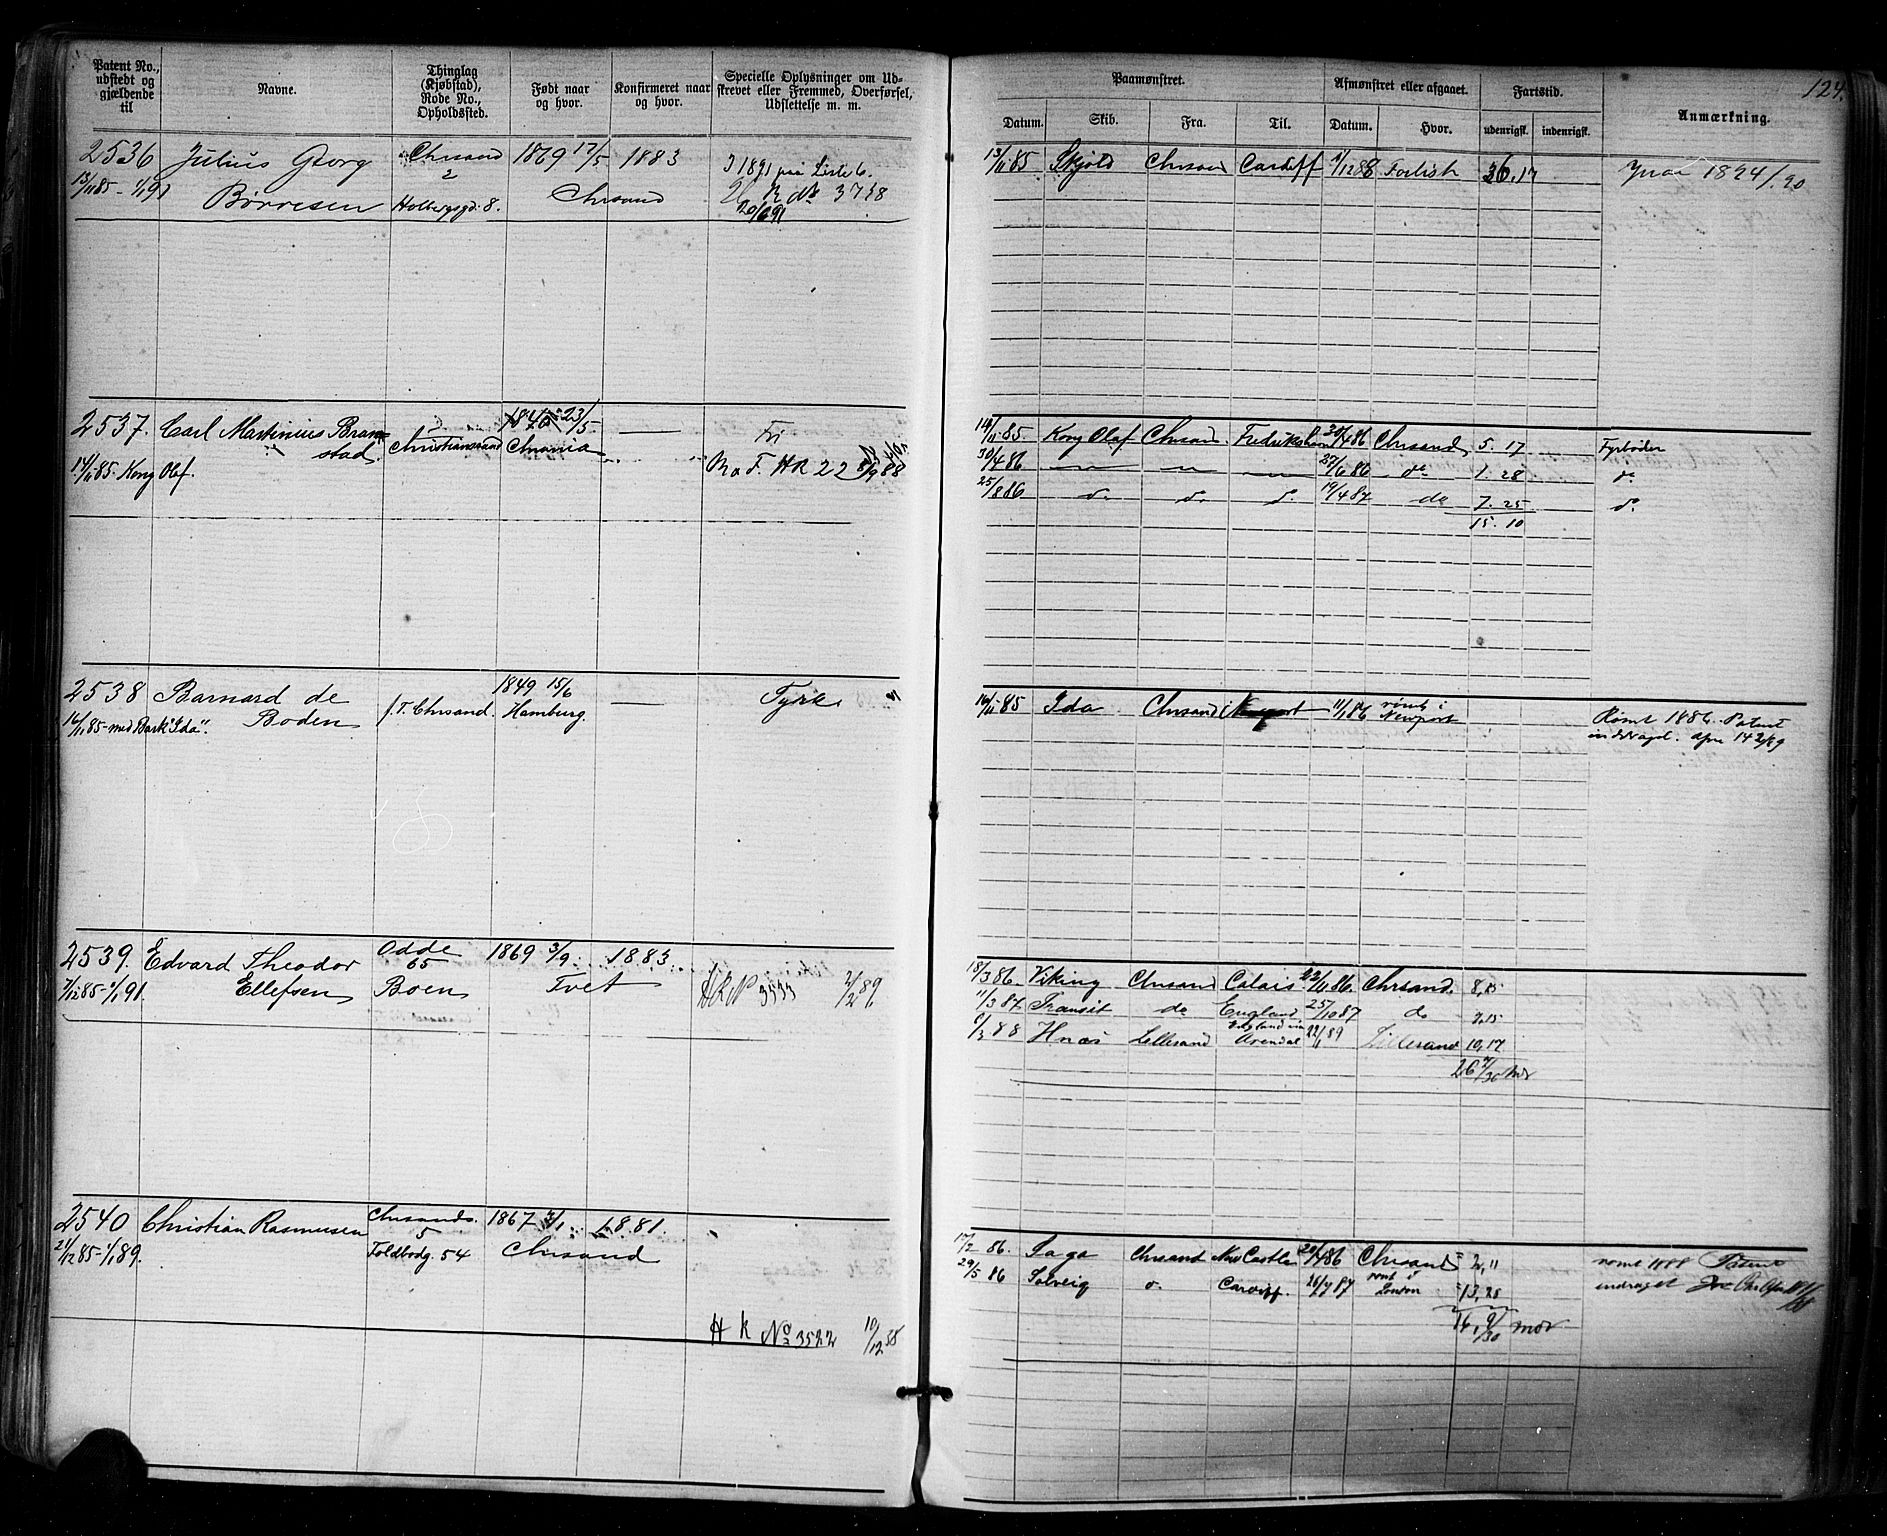 124.
Patent No., udstedt og gjældende til
Navne.
Thinglag (Kjøbstad), Rode No., Opholdssted.
Født naar og hvor.
Konfirmeret naar og hvor.
Specielle Oplysninger om Udskrevet eller Fremmed, Overførsel, Udslettelse m. m.
Paamønstret.
Afmønstret eller afgaaet.
Fartstid.
Anmærkning.
Datum. Skib. Fra. Til. Datum. Hvor. udenrigsk. indenrigsk.
2536 Julius Georg Chrsand 1869 17/5 1883 J 1891 paa Liste 6.
13/11 85 - 1/1 91 Børresen 2 Holbergsgd. 8. Chrsand R No 3738
20/6 91
13/11 85 Skjold Chrsand Cardiff 1/12 88 Forlist 36.17
2537. Carl Martinius Branstad Christianssand 1840 23/5 Chrania — Fri
14/11 85. Kong Olaf. HR 22
14/11 85. Kong Olaf Chrsand. Fredrikshavn 20/4 86 Chrsand 5. 17 Fyrbøder
30/4 86 — — — 27/6 86 do 1. 28 do
25/8 86 do do do 19/4 87 do 7. 25 do
15. 10
2538 Barnard de Boden f.T. Chrsand. 1849 15/6 Hamburg. — Tysk
16/11 85 - med Bark "Ida".
16/11 85 Ida Chrsand Newport 11/1 86 rømt i Newport Rømt 1886. Patent
inddraget.
2539. Edvard Theodor Odde 65 1869 3/9. 1883.
7/12 85 - 1/1 91. Ellefsen Boen Tvet HR No 3533 2/2 89
18/3 86. Viking Chrsand Calais 22/11 86. Chrsand. 8,
11/3 87. Transit do England 25/10 87 do 7,15
6/3 88 Hnos Lillesand England via Arendal 22/1 89 Lillesand 10,17
26 7/30 Mdr
2540 Christian Rasmusen Chrsands. 1867 1881.
21/12 85 - 1/1 89. 5 Toldbodg. 54 Chrsand
HR No 3522 10/12 88
17/2 86. Saga Chrsand New Castle 20/4 86 Chrsand 2,11 rømt 1888 Patent
29/5 86 Solveig do. Cardiff. 26/7 87 rømt i London 13,28 indraget
16, 9/30 mdr